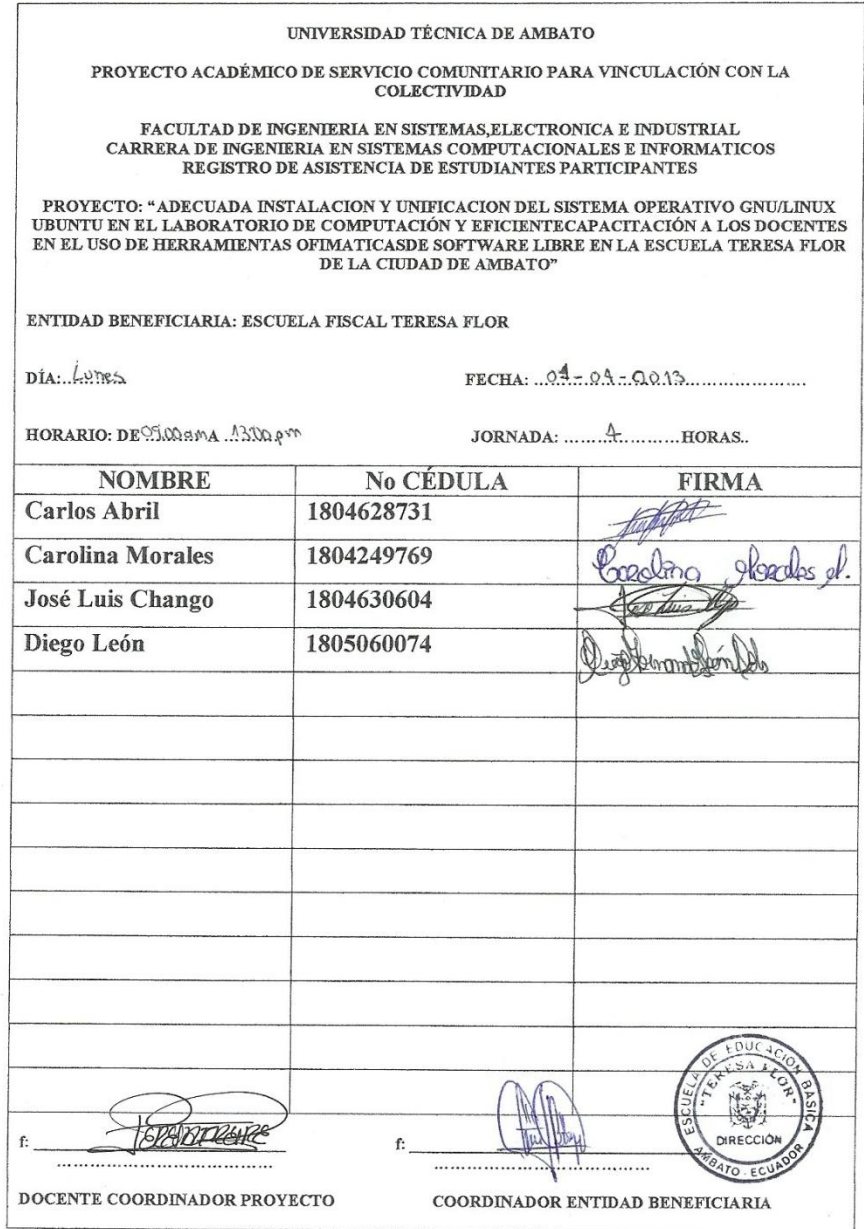 UNIVERSIDAD TÉCNICA DE AMBATO
PROYECTO ACADÉMICO DE SERVICIO COMUNITARIO PARA VINCULACIÓN CON LA
COLECTIVIDAD
FACULTAD DE INGENIERIA EN SISTEMAS,ELECTRONICA E INDUSTRIAL
CARRERA DE INGENIERIA EN SISTEMAS COMPUTACIONALES E INFORMATICOS
REGISTRO DE ASISTENCIA DE ESTUDIANTES PARTICIPANTES
PROYECTO: “ADECUADA INSTALACION Y UNIFICACION DEL SISTEMA OPERATIVO GNU/LINUX
UBUNTU EN EL LABORATORIO DE COMPUTACIÓN Y EFICIENTECAPACITACIÓN A LOS DOCENTES
EN EL USO DE HERRAMIENTAS OFIMATICASDE SOFTWARE LIBRE EN LA ESCUELA TERESA FLOR
DE LA CIUDAD DE AMBATO”
ENTIDAD BENEFICIARIA: ESCUELA FISCAL TERESA FLOR
DÍA:..Lunes FECHA: ...01-04-2013.......................
HORARIO: DE 09:00am A ..13:00 pm JORNADA: .......4............HORAS..
NOMBRE No CÉDULA FIRMA
Carlos Abril 1804628731
Carolina Morales 1804249769 Carolina Morales
José Luis Chango 1804630604 José Luis
Diego León 1805060074 Diego León
ESCUELA DE EDUCACION BASICA
"TERESA FLOR"
DIRECCIÓN
AMBATO - ECUADOR
f: f:
DOCENTE COORDINADOR PROYECTO COORDINADOR ENTIDAD BENEFICIARIA